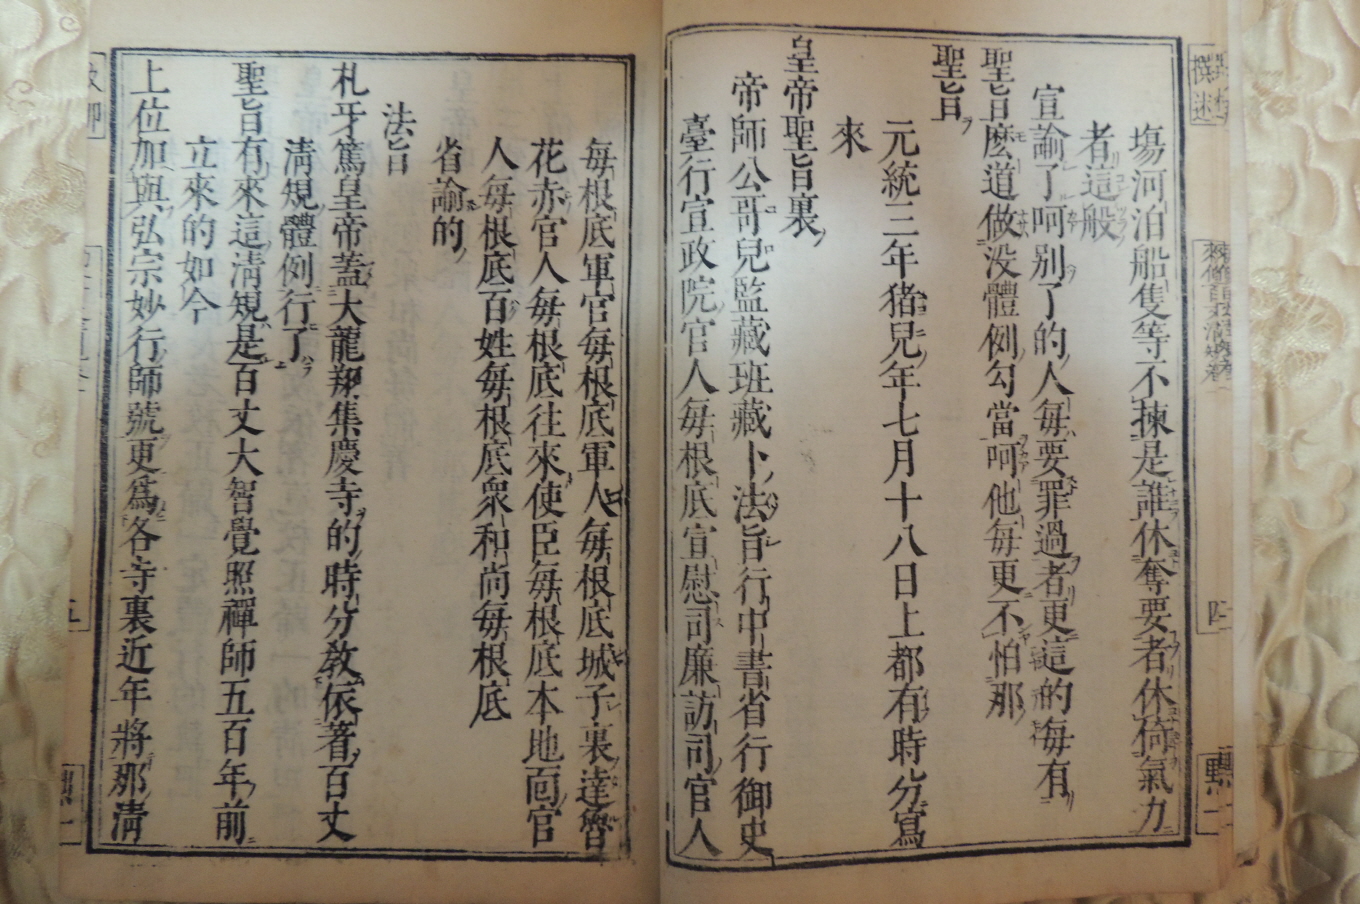 塲河泊船隻等不揀是誰休奪要者休倚氣力
者這般
宣諭了呵別了的人每要罪過者更這的每有
聖旨麽道做没體例勾當呵他每更不怕那
聖旨
元統三年猪兒年七月十八日上都有時分寫
來
皇帝聖旨裏
帝師公哥兒監藏班藏卜法旨行中書省行御史
臺行宣政院官人每根底宣慰司廉訪司官人
每根底軍官每根底軍人每根底城子裏達魯
花赤官人每根底往來使臣每根底本地面官
人每根底百姓每根底衆和尚每根底
省諭的
法旨
札牙篤皇帝蓋大龍翔集慶寺的時分教依著百丈
清規體例行了
聖旨有來這清規是百丈大智覺照禪師五百年前
立來的如今
上位加與弘宗妙行師號更爲各寺裏近年將那清